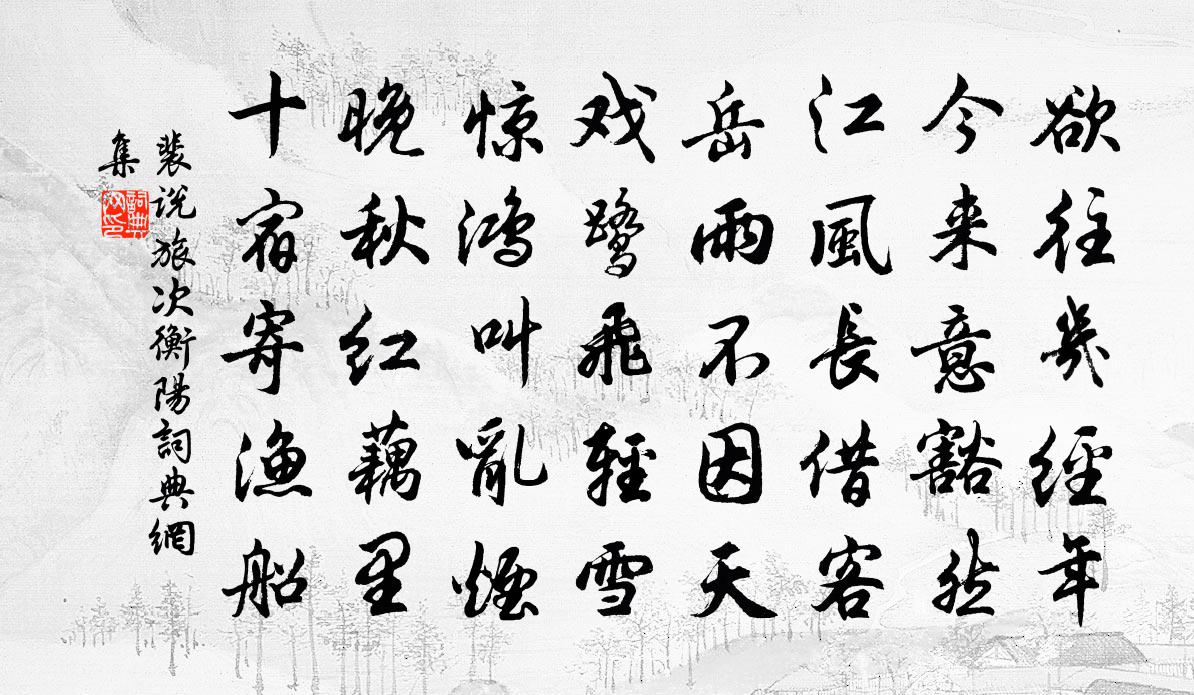 欲往幾經年
今来意豁然
江風長借客
岳雨不因天
戏鷺飛輕雪
惊鴻叫亂煙
晚秋红藕里
十宿寄渔船
裴说旅次衡陽詞典網
集
詞典网印